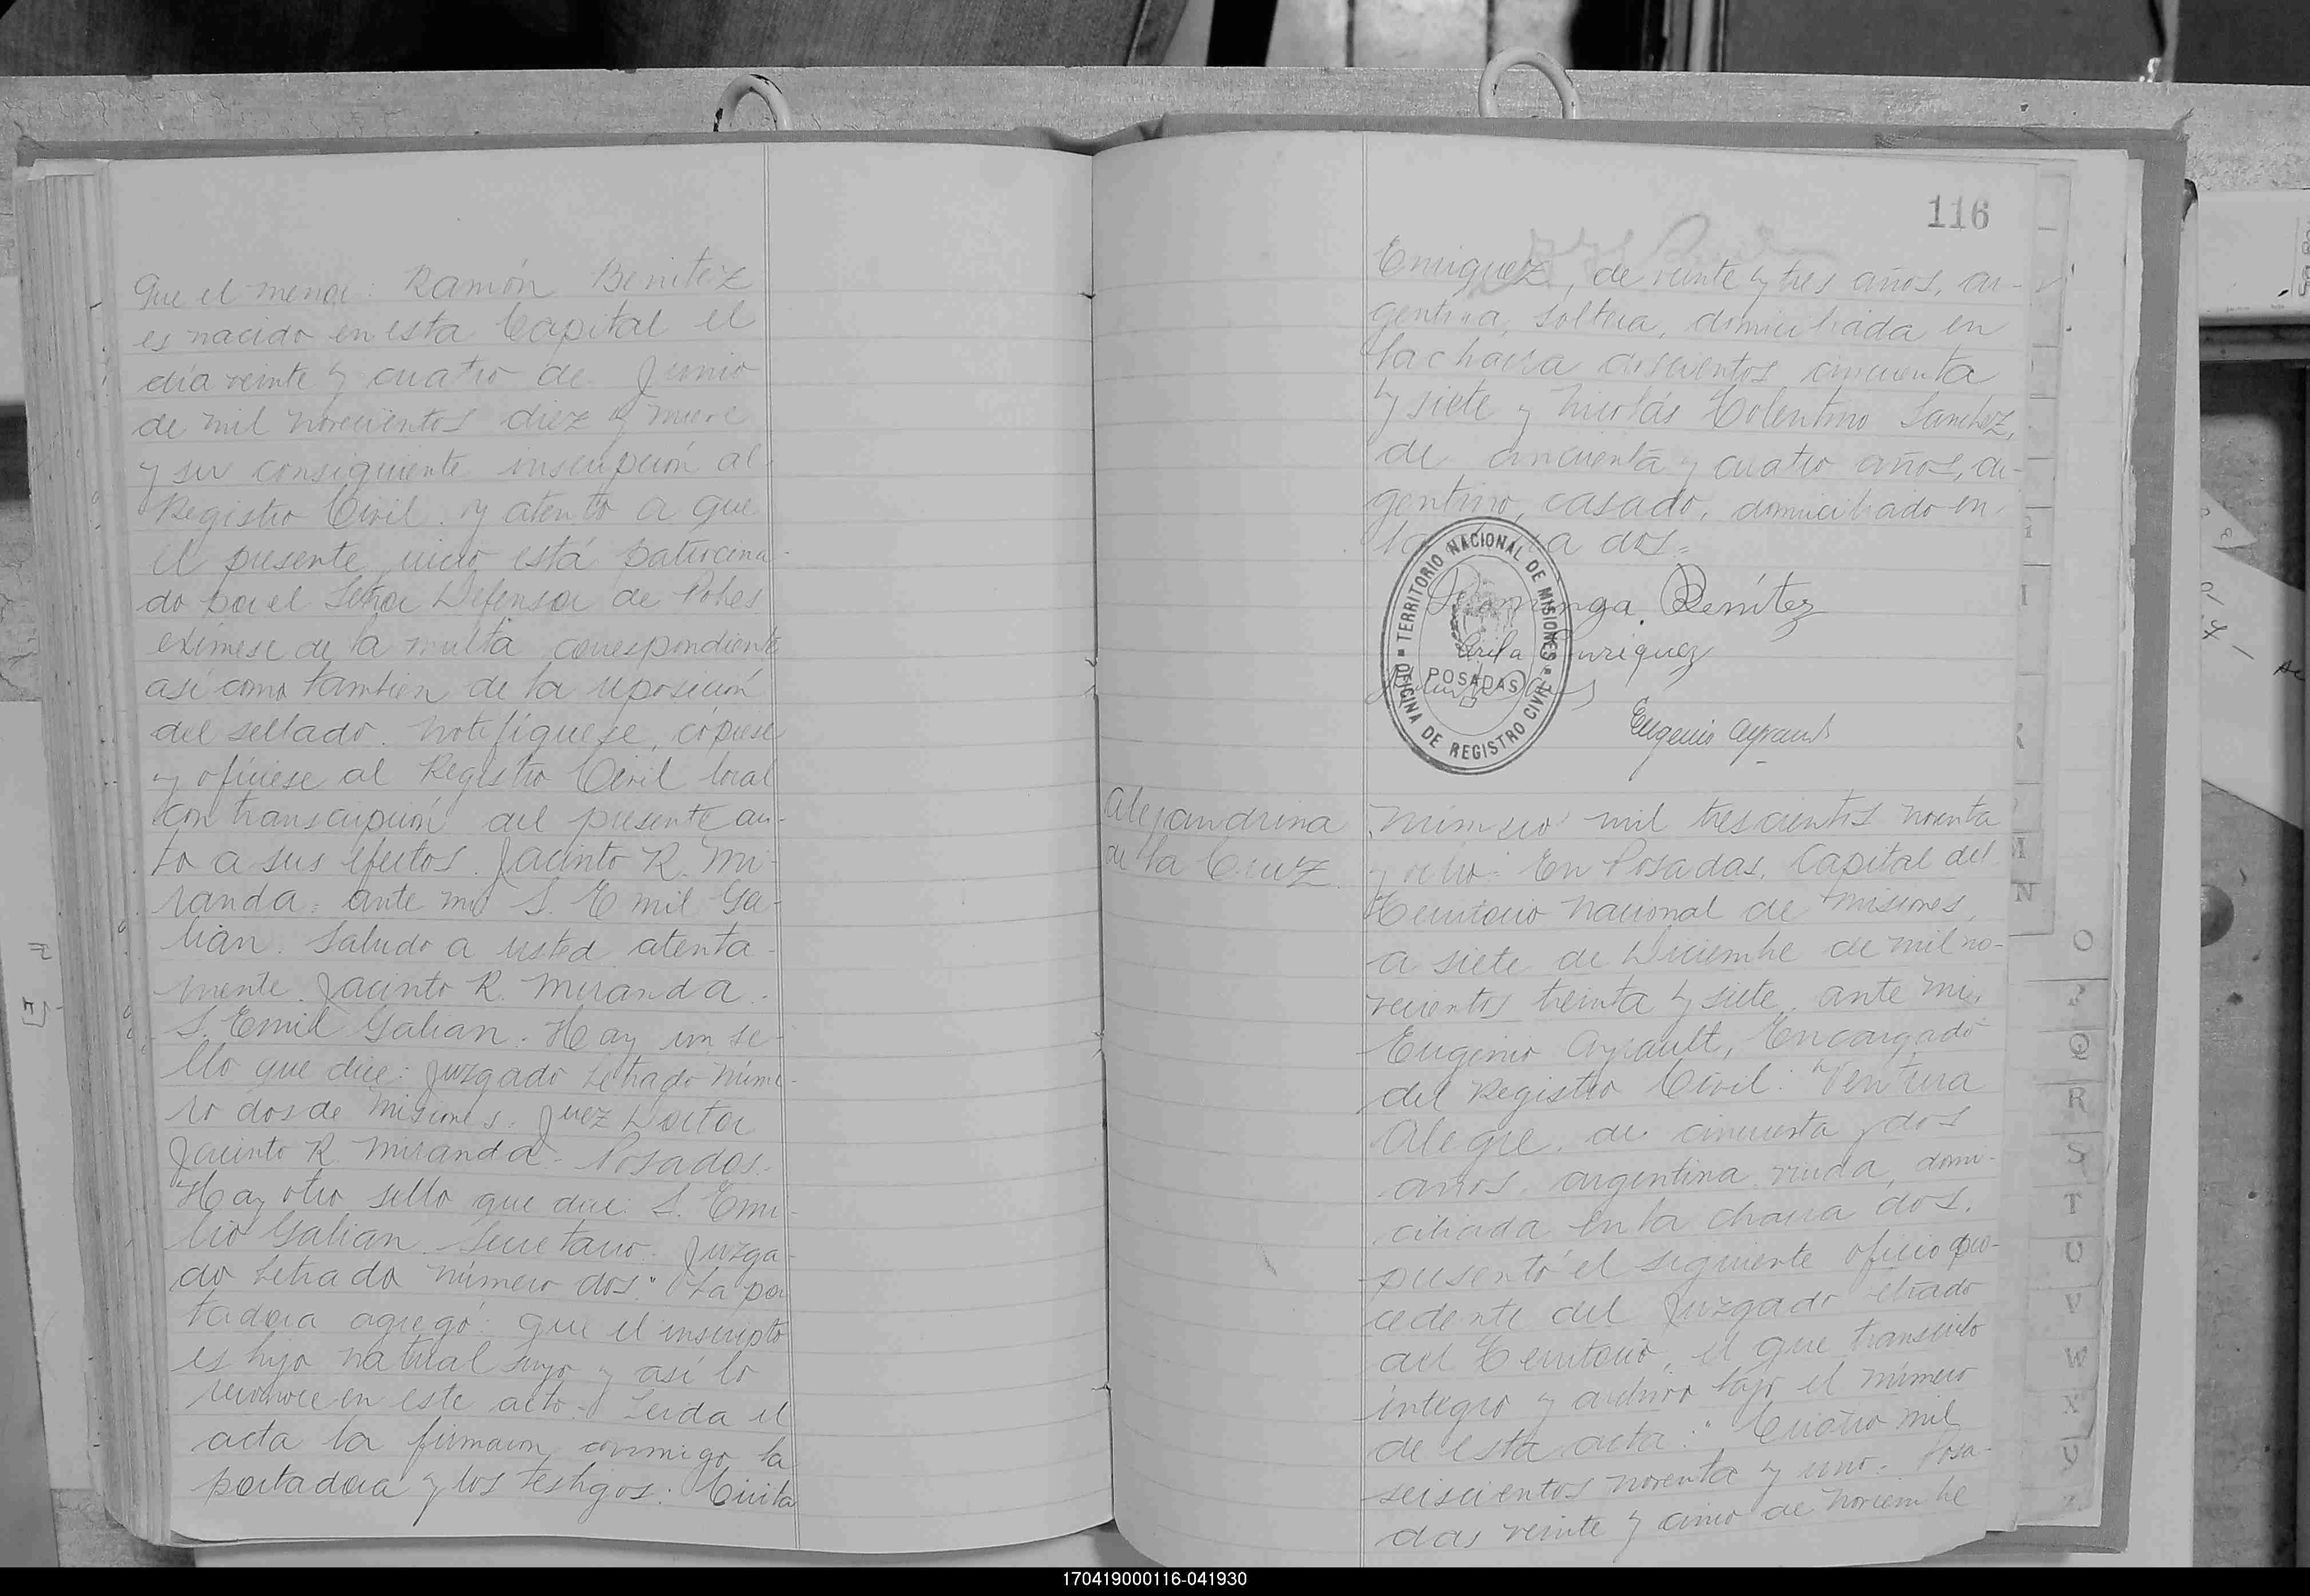 Que el menor: Ramón Benitez
es nacido en esta Capital el
día veinte y cuatro de Junio
de mil novecientos diez y nueve
y su consiguiente inscripción al
Registro Civil. y atento a que
el presente juicio está patrocina-
do por el Señor Defensor de Pobres
exímese de la multa correspondiente
así como tambien de la reposición
del sellado. Notifíquese, cópiese
y ofíciese al Registro Civil local
con transcripción del presente au-
to a sus efectos. Jacinto R. Mi-
randa: ante mi S. Emil Ga-
lian. Saludo a usted atenta-
mente. Jacinto R. Miranda.
S. Emil Galian. Hay un se-
llo que dice: Juzgado Letrado Núme-
ro dos de Misiones. Juez Doctor
Jacinto R. Miranda - Posadas.
Hay otro sello que dice: S. Emi-
lio Galian. Secretario. Juzga-
do Letrado número dos." La por
tadora agregó: que el inscripto
es hijo natural suyo y así lo
reconoce en este acto. Leida el
acta la firmaron conmigo la
portadora y los testigos: Cirila
116
Enriquez, de veinte y tres años, ar-
gentina, soltera, domiciliada en
la chacra doscientos cincuenta
y siete y Nicolás Tolentino Sanchez,
de cincuenta y cuatro años, ar-
gentino, casado, domiciliado en
la a dos.=
Dominga Benítez
Cirila Enriquez
Eugenio Ayrault
TERRITORIO NACIONAL DE MISIONES
POSADAS
OFICINA DE REGISTRO CIVIL
Alejandrina
de la Cruz
Número mil trescientos noventa
y ocho: En Posadas, Capital del
Territorio Nacional de Misiones,
a siete de Diciembre de mil no-
vecientos treinta y siete, ante mi,
Eugenio Ayrault, Encargado
del Registro Civil: Ventura
Alegre, de cincuenta y dos
años, argentina viuda, domi-
ciliada en la chacra dos,
presentó el siguiente oficio pro-
cedente del Juzgado Letrado
del Territorio, el que transcribo
íntegro y archivo bajo el número
de esta acta: "Cuatro mil
seiscientos noventa y uno. Posa-
das veinte y cinco de Noviembre
I
K
M
N
O
P
Q
R
S
T
U
V
W
X
Y
Z
170419000116-041930